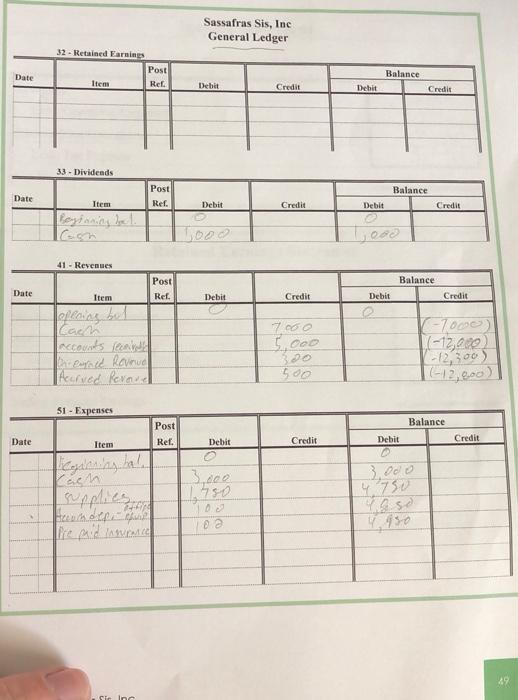 Sassafras Sis, Inc
General Ledger
32 - Retained Earnings
Date Item Post Ref. Debit Credit Balance Debit Credit
33 - Dividends
Date Item Post Ref. Debit Credit Balance Debit Credit
Beginning bal. 0 0
Cash 1,000 1,000
41 - Revenues
Date Item Post Ref. Debit Credit Balance Debit Credit
opening bal 0 0
Cash 7000 (-7,000)
accounts 5,000 (-12,000)
Revenue 300 (-12,300)
Accrued 500 (-12,800)
51 - Expenses
Date Item Post Ref. Debit Credit Balance Debit Credit
Beginning bal. 0 0
Cash 3,000 3,000
supplies 1,750 4,750
Accum dep. - office equip 100 4,850
Pre paid insurance 100 4,950
49
Sis, Inc